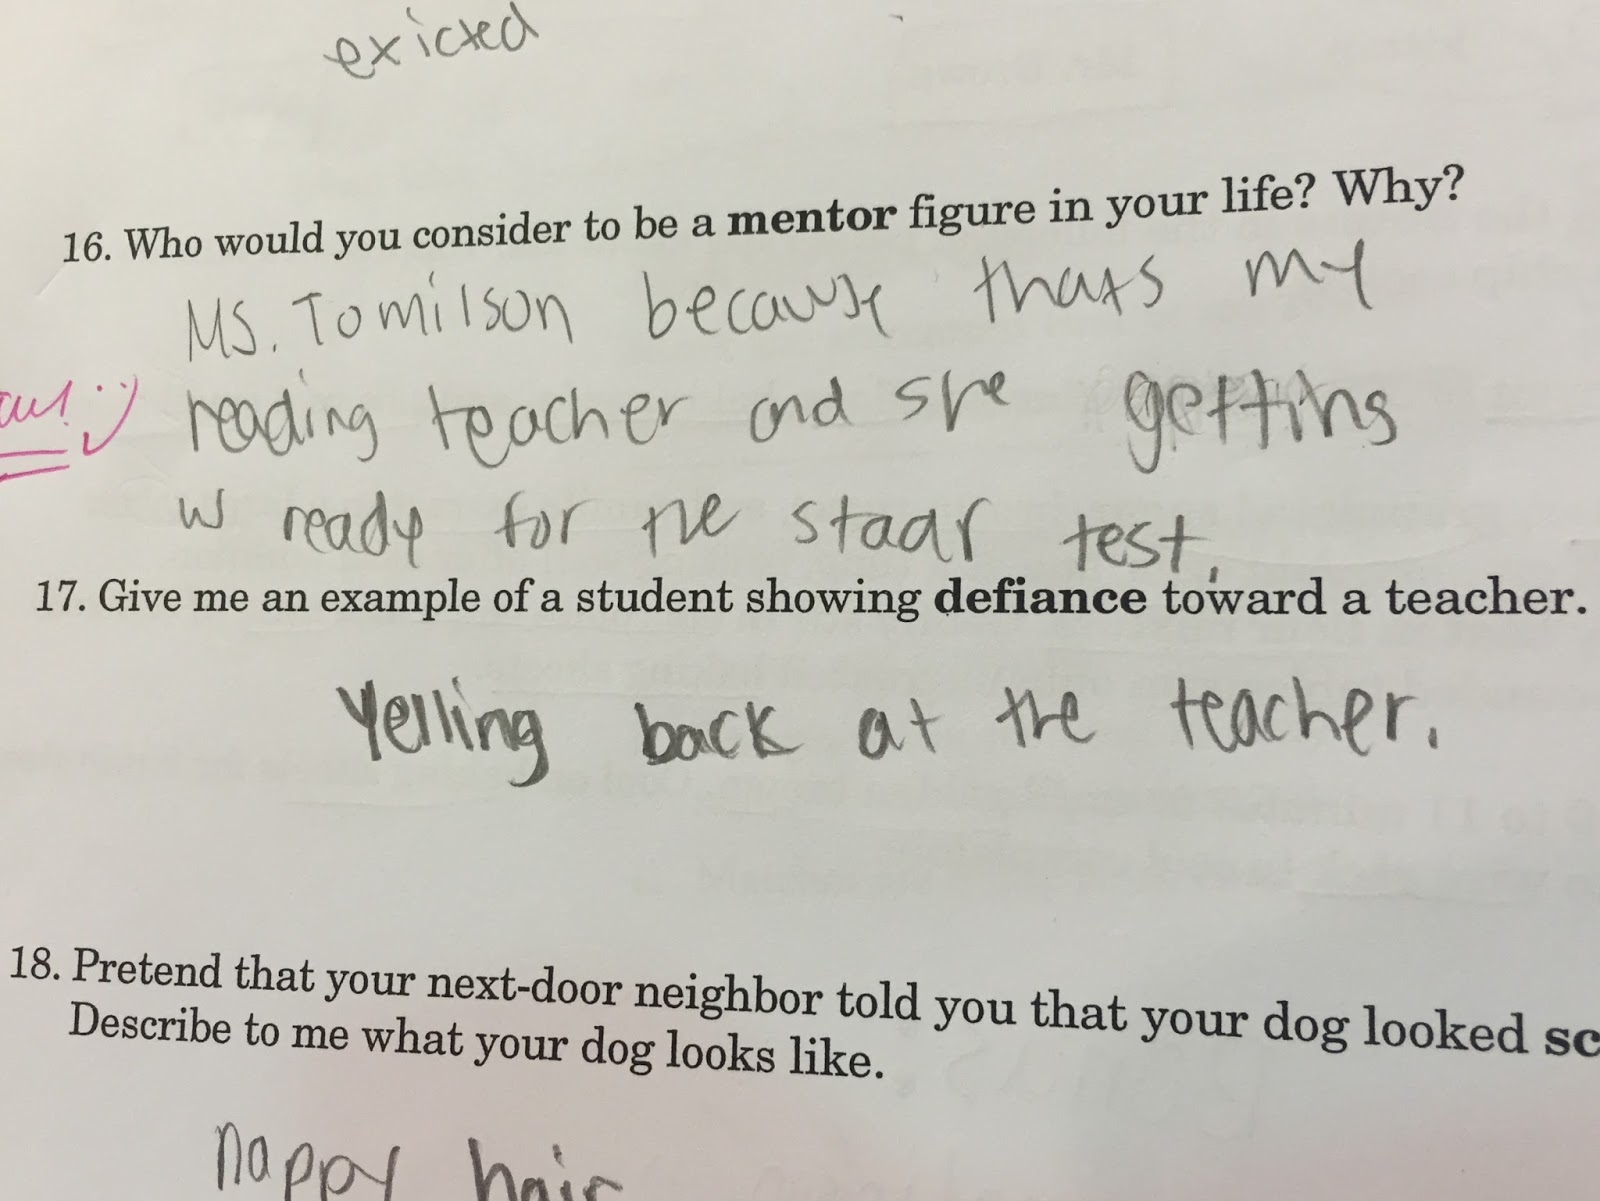 exicted
16. Who would you consider to be a mentor figure in your life? Why?
Ms. Tomilson because thats my
reading teacher and she getting
us ready for the staar test.
17. Give me an example of a student showing defiance toward a teacher.
Yelling back at the teacher.
18. Pretend that your next-door neighbor told you that your dog looked sc
Describe to me what your dog looks like.
nappy hair